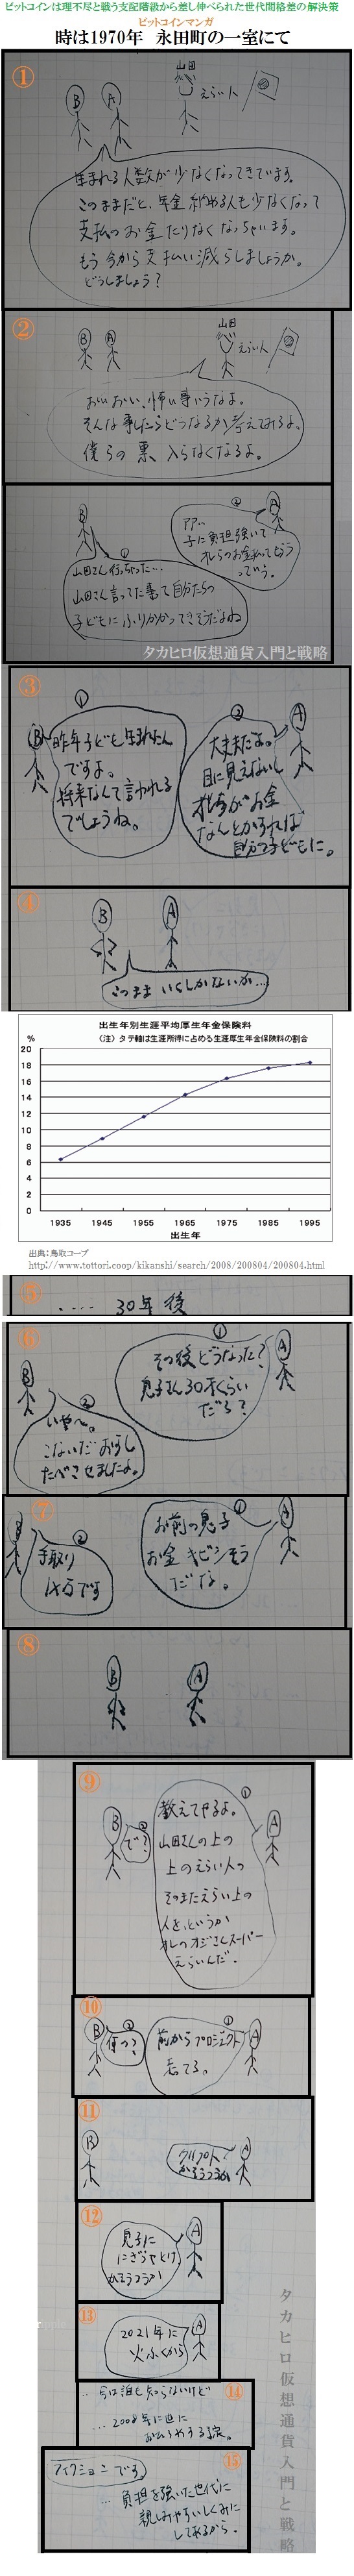 ビットコインは理不尽と戦う支配階級から差し伸べられた世代間格差の解決策
ビットコインマンガ
時は1970年 永田町の一室にて
①
B
A
山田
えらい人
生まれる人数が少なくなってきています。
このままだと、年金納める人も少なくなって
支払のお金たりなくなっちゃいます。
もう今から支払い減らしましょうか。
どうしましょう?
②
B
A
山田
えらい人
おいおい、怖い事いうなよ。
そんな事したらどうなるか考えてみろよ。
僕らの票 入らなくなるよ。
B
①
山田さん行っちゃった…
山田さん言ってた事って自分たちの
子どもにふりかかってきそうだよね
A
②
子に負担強いて
オレらのお金払ってもらう
っていう。
タカヒロ仮想通貨入門と戦略
③
B
①
昨年子ども生まれたん
ですよ。
将来なんて言われる
でしょうね。
A
②
大丈夫だよ。
目に見えないし
お金
なんとかすれば
自分の子どもに。
④
B
A
このまま いくしかないか…
出生年別生涯平均厚生年金保険料
(注)タテ軸は生涯所得に占める生涯厚生年金保険料の割合
%
20
18
16
14
12
10
8
6
4
2
0
1935 1945 1955 1965 1975 1985 1995
出生年
出典:鳥取コープ
http://www.tottori.coop/kikanshi/search/2008/200804/200804.html
⑤
.... 30年後
⑥
A
①
その後どうなった?
息子さん30才くらい
だろ?
B
②
いやー。
こないだおすし
たべさせましたよ。
⑦
A
①
お前の息子
お金キビシそう
だな。
B
②
手取り
14万です
⑧
B
A
⑨
A
①
教えてやるよ。
山田さんの上の
上のえらい人の
そのまたえらい上の
人を、というか
オレのオジさんスーパー
えらいんだ。
B
②
で?
⑩
A
①
前からプロジェクト
走ってる。
B
②
何の?
⑪
B
A
クリプト?
かそうつうか
⑫
A
息子に
にぎらせとけ
かそうつうか
⑬
A
2021年に
火ふくから
⑭
…今は誰も知らないけど
…2008年に世に
⑮
フィクションです。
…負担を強いた世代に
親しみやすいしくみに
してあるから.
タカヒロ仮想通貨入門と戦略